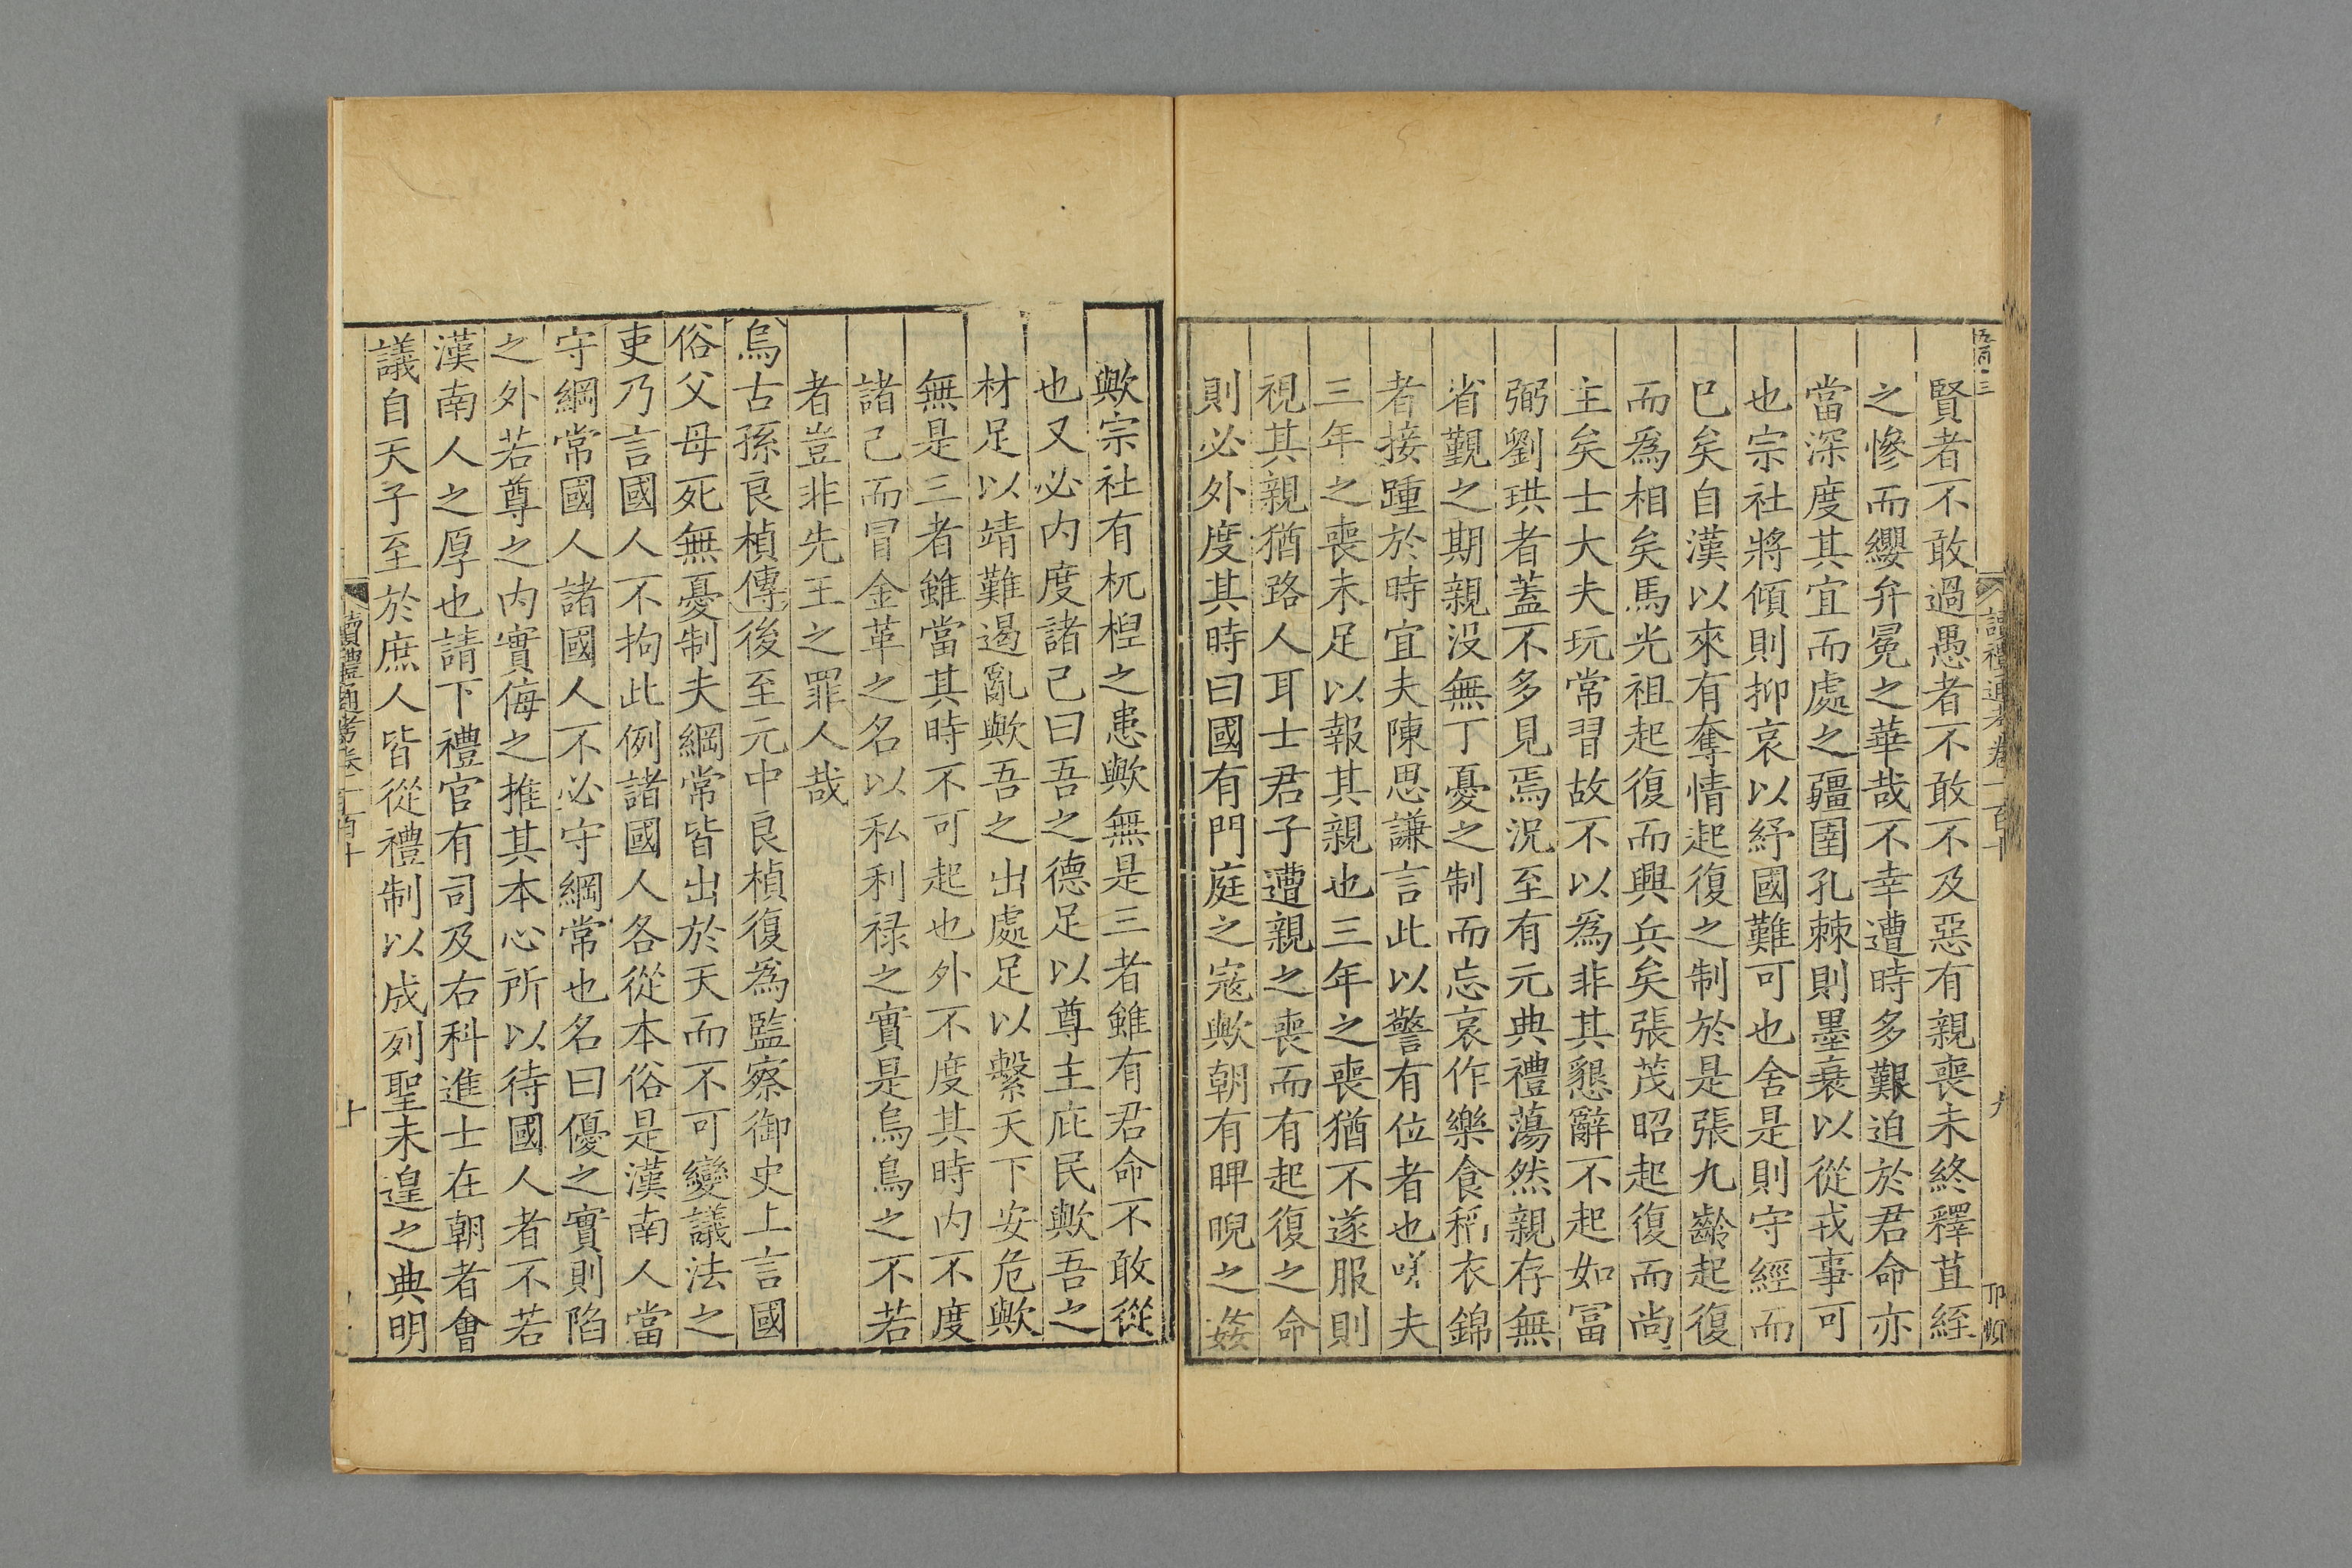 五百三
讀禮通考卷一百十
九
賢者不敢過愚者不敢不及惡有親喪未終釋苴絰
之慘而纓弁冕之華哉不幸遭時多艱迫於君命亦
當深度其宜而處之疆圉孔棘則墨衰以從戎事可
也宗社將傾則抑哀以紓國難可也舍是則守經而
已矣自漢以來有奪情起復之制於是張九齡起復
而爲相矣馬光祖起復而興兵矣張茂昭起復而尚
主矣士大夫玩常習故不以爲非其懇辭不起如冨
弼劉珙者蓋不多見焉況至有元典禮蕩然親存無
省覲之期親没無丁憂之制而忘哀作樂食稻衣錦
者接踵於時宜夫陳思謙言此以警有位者也嗟夫
三年之喪未足以報其親也三年之喪猶不遂服則
視其親猶路人耳士君子遭親之喪而有起復之命
則必外度其時曰國有門庭之寇歟朝有睥睨之姦
歟宗社有杌棿之患歟無是三者雖有君命不敢從
也又必内度諸己曰吾之德足以尊主庇民歟吾之
材足以靖難遏亂歟吾之出處足以繫天下安危歟
無是三者雖當其時不可起也外不度其時内不度
諸己而冒金革之名以私利禄之實是烏鳥之不若
者豈非先王之罪人哉
烏古孫良楨傳後至元中良楨復爲監察御史上言國
俗父母死無憂制夫綱常皆出於天而不可變議法之
吏乃言國人不拘此例諸國人各從本俗是漢南人當
守綱常國人諸國人不必守綱常也名曰優之實則陷
之外若尊之内實侮之推其本心所以待國人者不若
漢南人之厚也請下禮官有司及右科進士在朝者會
議自天子至於庶人皆從禮制以成列聖未遑之典明
讀禮通考卷一百十
十